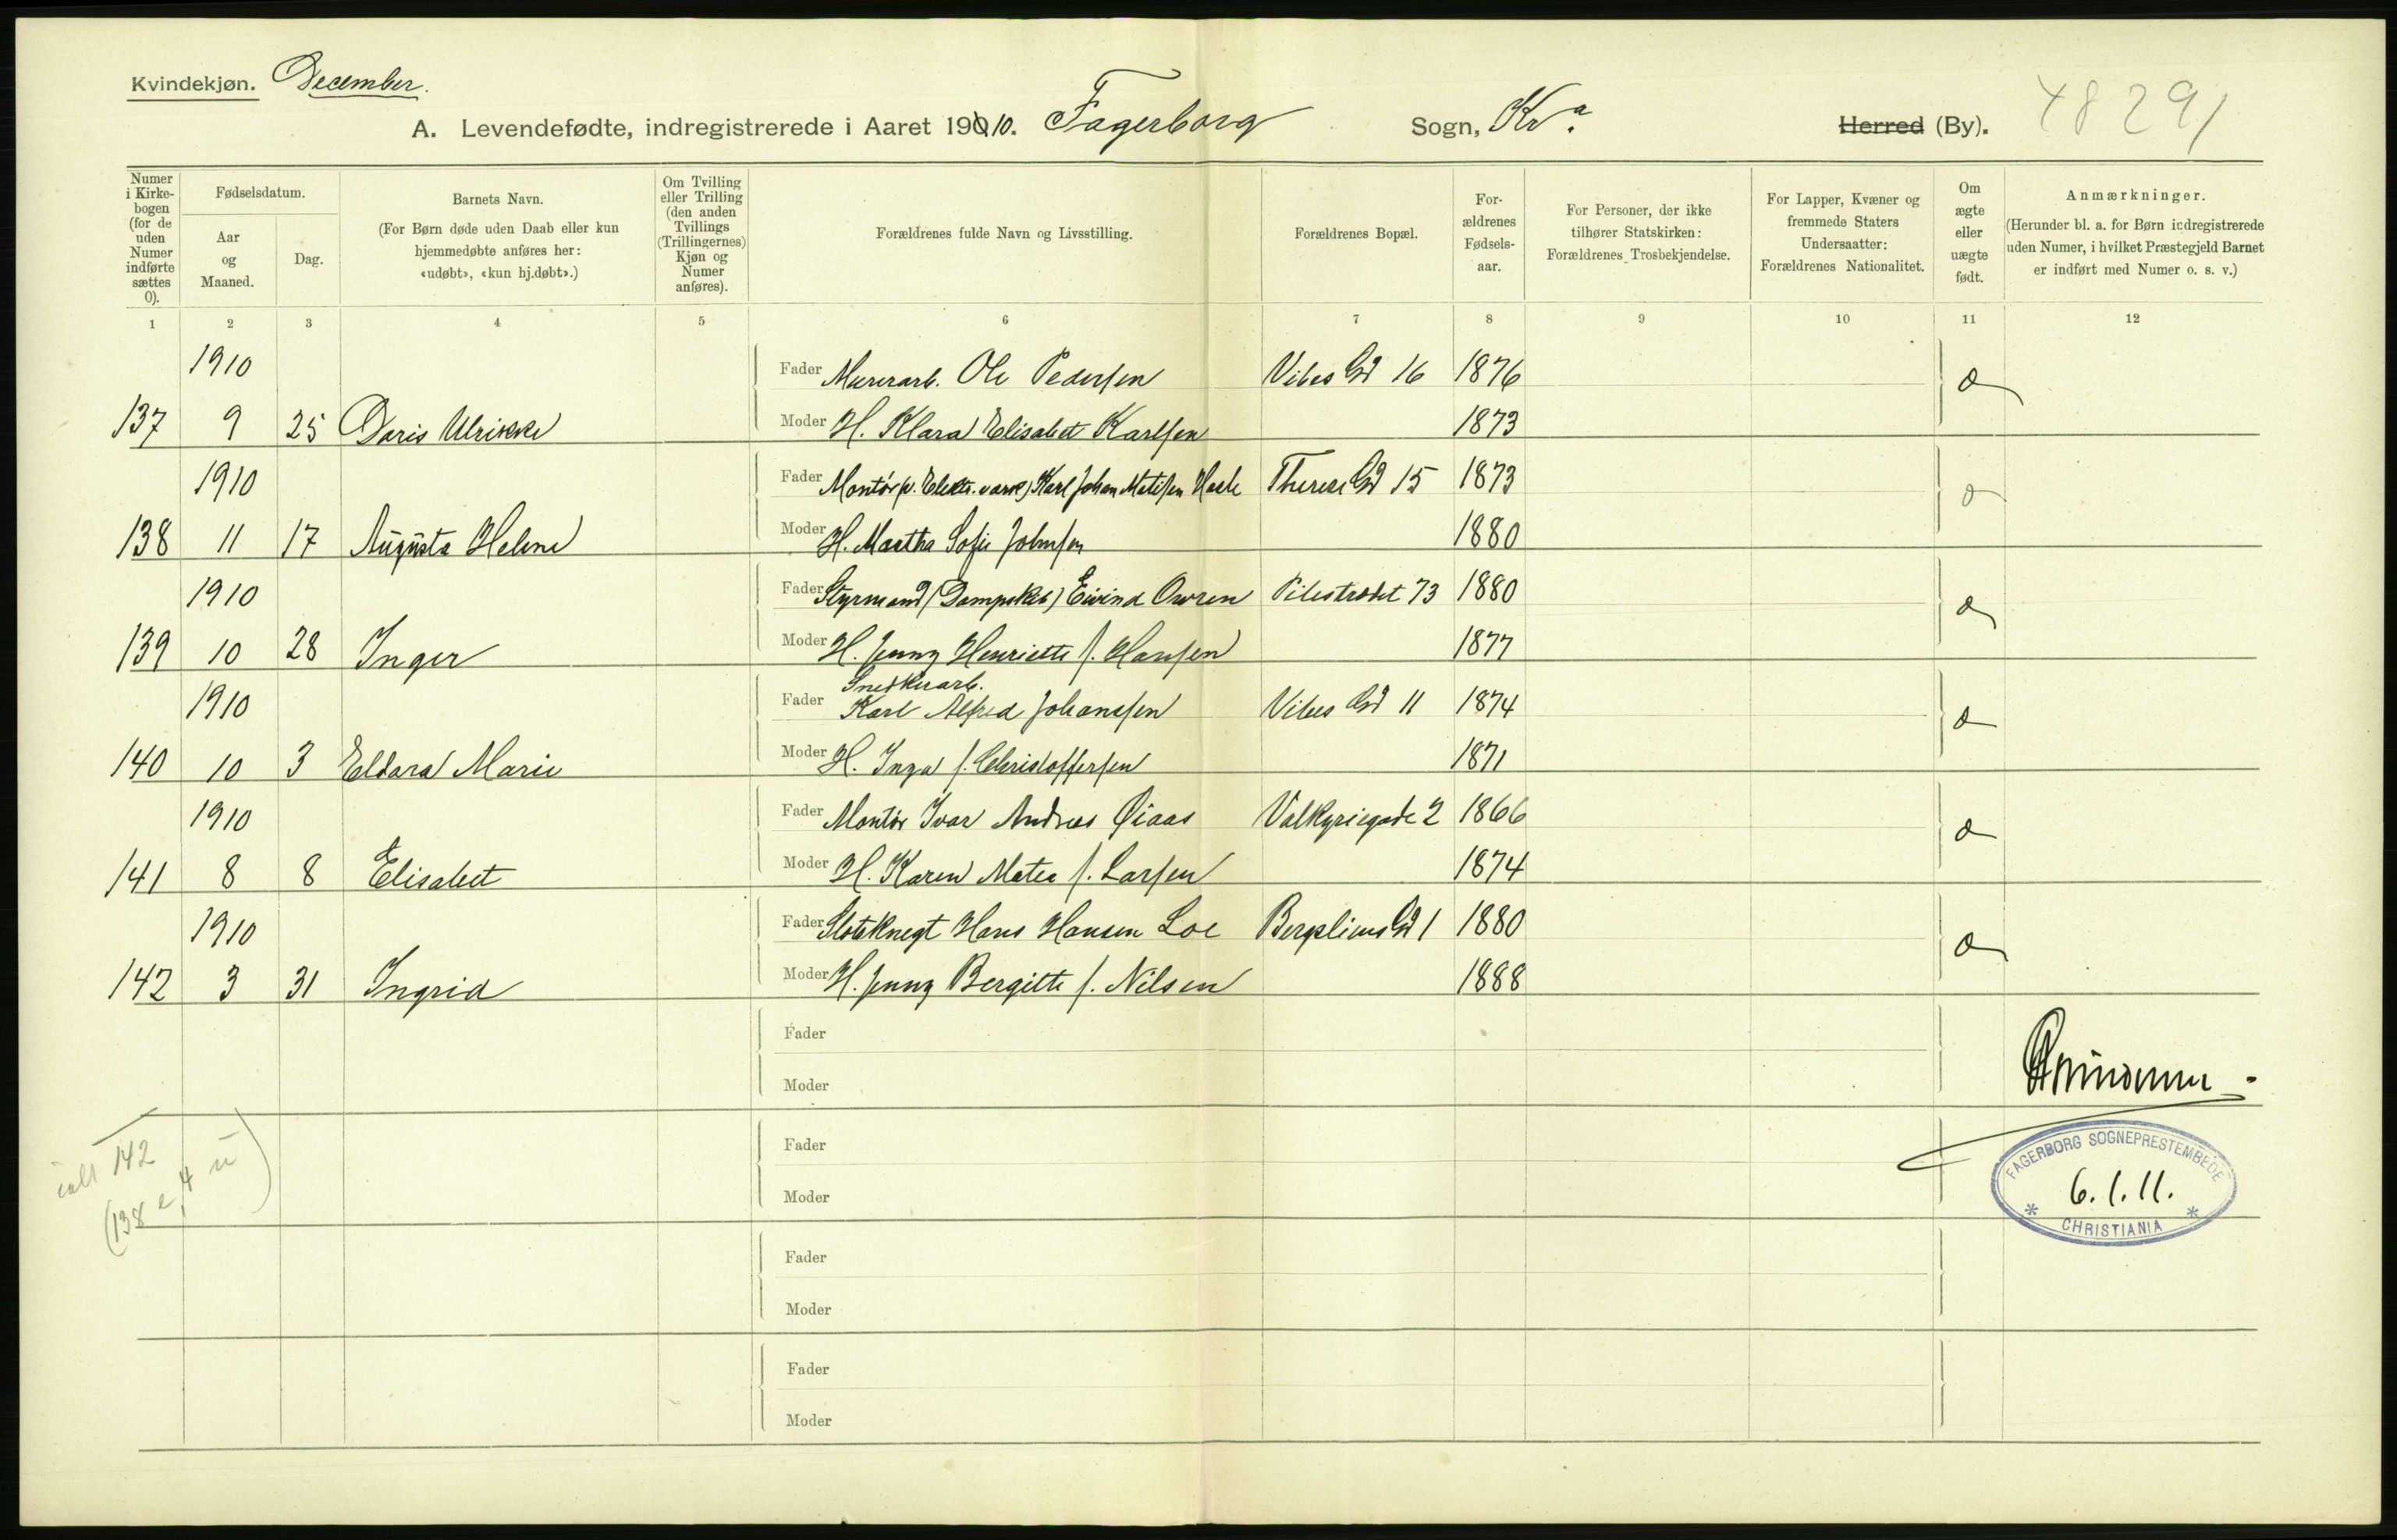 Kvindekjøn. December.
A. Levendefødte, indregistrerede i Aaret 1910. Fagerborg Sogn, Kra. Herred (By). 48291
Numer i Kirkebogen (for de uden Numer indførte sættes 0).
Fødselsdatum.
Aar og Maaned.
Dag.
Barnets Navn.
(For Børn døde uden Daab eller kun hjemmedøbte anføres her: «udøbt», «kun hj.døbt».)
Om Tvilling eller Trilling (den anden Tvillings (Trillingernes) Kjøn og Numer anføres).
Forældrenes fulde Navn og Livsstilling.
Forældrenes Bopæl.
Forældrenes Fødselsaar.
For Personer, der ikke tilhører Statskirken: Forældrenes Trosbekjendelse.
For Lapper, Kvæner og fremmede Staters Undersaatter: Forældrenes Nationalitet.
Om ægte eller uægte født.
Anmærkninger.
(Herunder bl. a. for Børn indregistrerede uden Numer, i hvilket Præstegjeld Barnet er indført med Numer o. s. v.)
1 2 3 4 5 6 7 8 9 10 11 12
1910 Fader Murerarb. Ole Pedersen Vibes Gd 16 1876
137 9 25 Doris Ulrikke Moder H. Klara Elisabet Karlsen 1873
1910 Fader Montør (v. Elektr. værk) Karl Johan Matisen Hasle Therese Gd 15 1873
138 11 17 Augusta Helene Moder H. Martha Sofie Johnsen 1880
1910 Fader Styrmand (Dampskib) Eivind Owren Pilestrædet 73 1880
139 10 28 Inger Moder H. Jenny Henriette f. Hansen 1877
Snedkerarb.
1910 Fader Karl Alfred Johansen Vibes Gd 11 1874
140 10 3 Eldara Marie Moder H. Inga f. Christoffersen 1871
1910 Fader Montør Ivar Andreas Øiaas Valkyriegade 2 1866
141 8 8 Elisabet Moder H. Karen Matea f. Larsen 1874
1910 Fader Slotsknegt Hans Hansen Loe Bergliens Gd 1 1880
142 3 31 Ingrid Moder H. Jenny Bergitte f. Nilsen 1888
Fader
Moder
Fader
ialt 142
Moder
(138 e, 4 u)
FAGERBORG SOGNEPRESTEMBEDE
6.1.11.
CHRISTIANIA
Fader
Moder
Fader
Moder